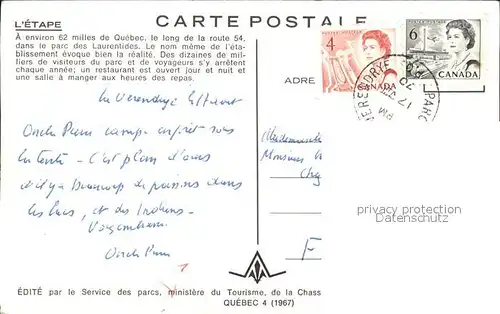 L'ÉTAPE
CARTE POSTALE
À environ 62 milles de Québec, le long de la route 54,
dans le parc des Laurentides. Le nom même de l'éta-
blissement évoque bien la réalité. Des dizaines de mil-
liers de visiteurs du parc et de voyageurs s'y arrêtent
chaque année; un restaurant est ouvert jour et nuit et
une salle à manger aux heures des repas.
4
CANADA
6
CANADA
PARC
PM
17
ADRE
La Verendrye
camp auprès sous
la tente - C'est plein d'ours
et il y a Beaucoup de poissons dans
les lacs, et des Indiens -
Mademoiselle
Monsieur
F
privacy protection
Datenschutz
ÉDITÉ par le Service des parcs, ministère du Tourisme, de la Chass
QUÉBEC 4 (1967)